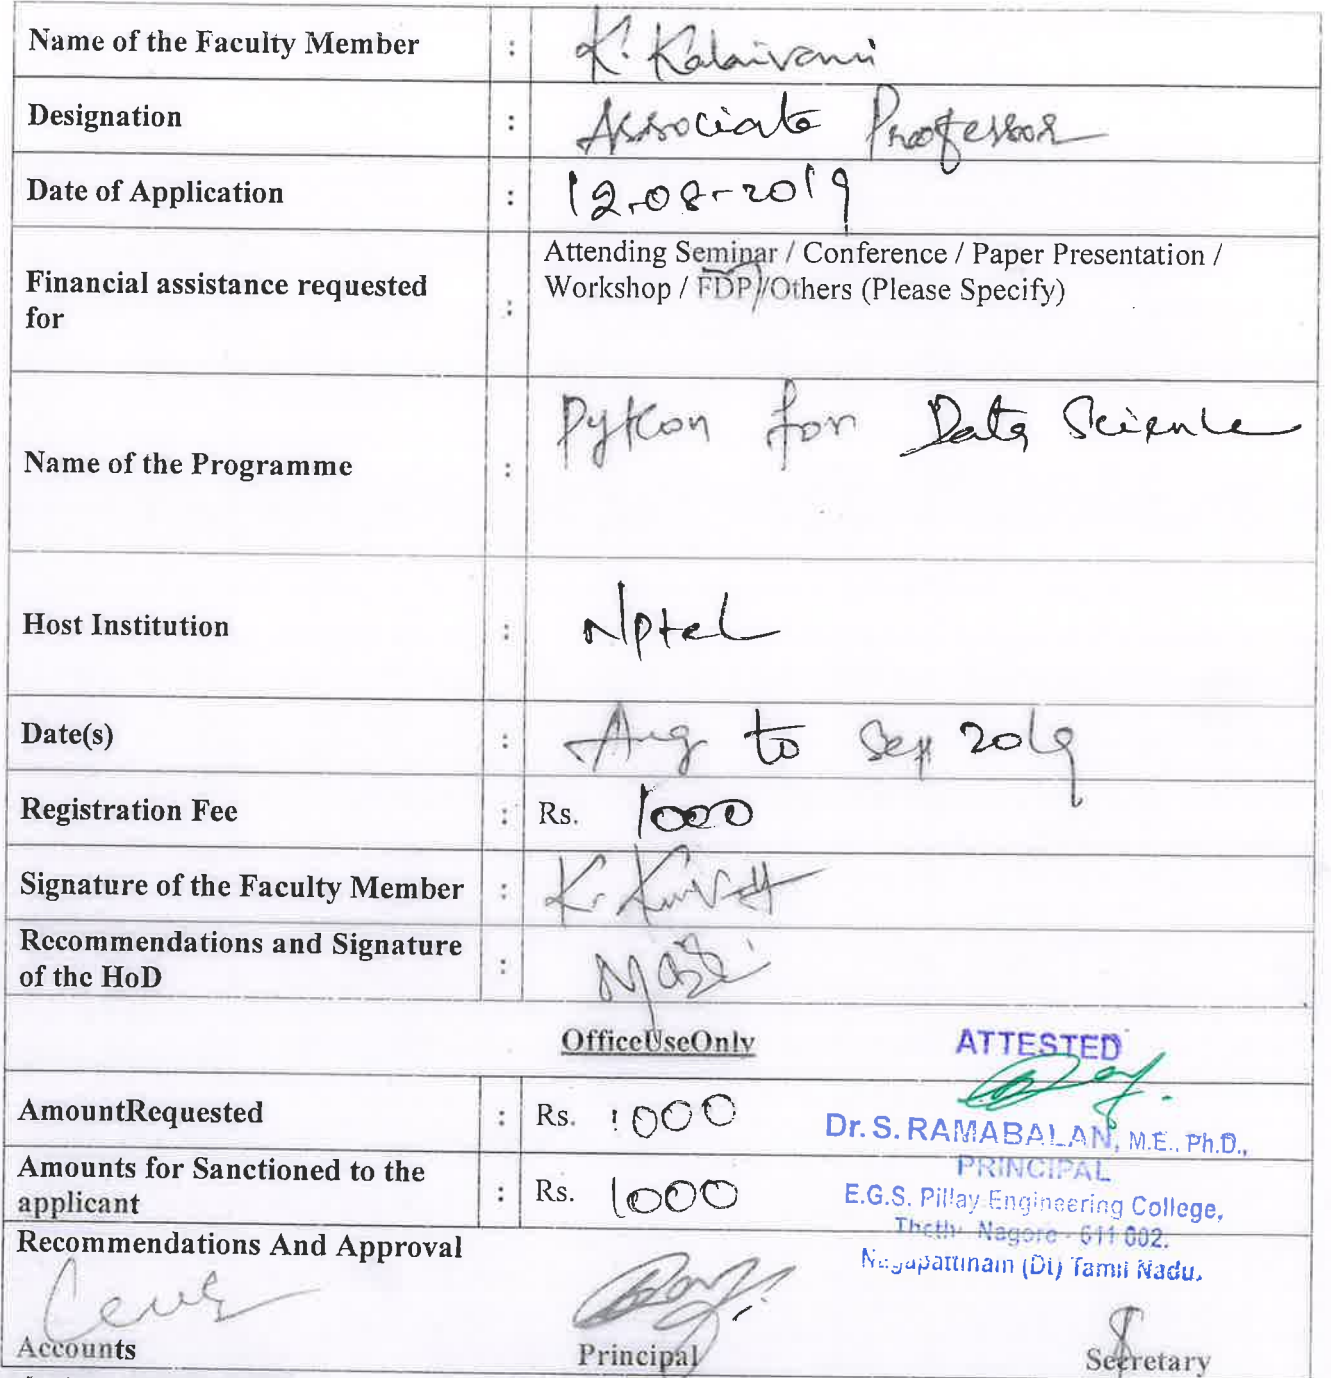 Name of the Faculty Member : K. Kalaivani
Designation : Associate Professor
Date of Application : 12-08-2019
Financial assistance requested
for
:
Attending Seminar / Conference / Paper Presentation /
Workshop / FDP / Others (Please Specify)
Name of the Programme : Python for Data Science
Host Institution : Nptel
Date(s) : Aug to Sep 2019
Registration Fee : Rs. 1000
Signature of the Faculty Member :
Recommendations and Signature
of the HoD
:
OfficeUseOnly
ATTESTED
AmountRequested : Rs. 1000
Dr. S. RAMABALAN, M.E., Ph.D.,
PRINCIPAL
Amounts for Sanctioned to the
applicant
: Rs. 1000
E.G.S. Pillay Engineering College,
Thethi, Nagore - 611 002.
Nagapattinam (Dt) Tamil Nadu.
Recommendations And Approval
Accounts Principal Secretary